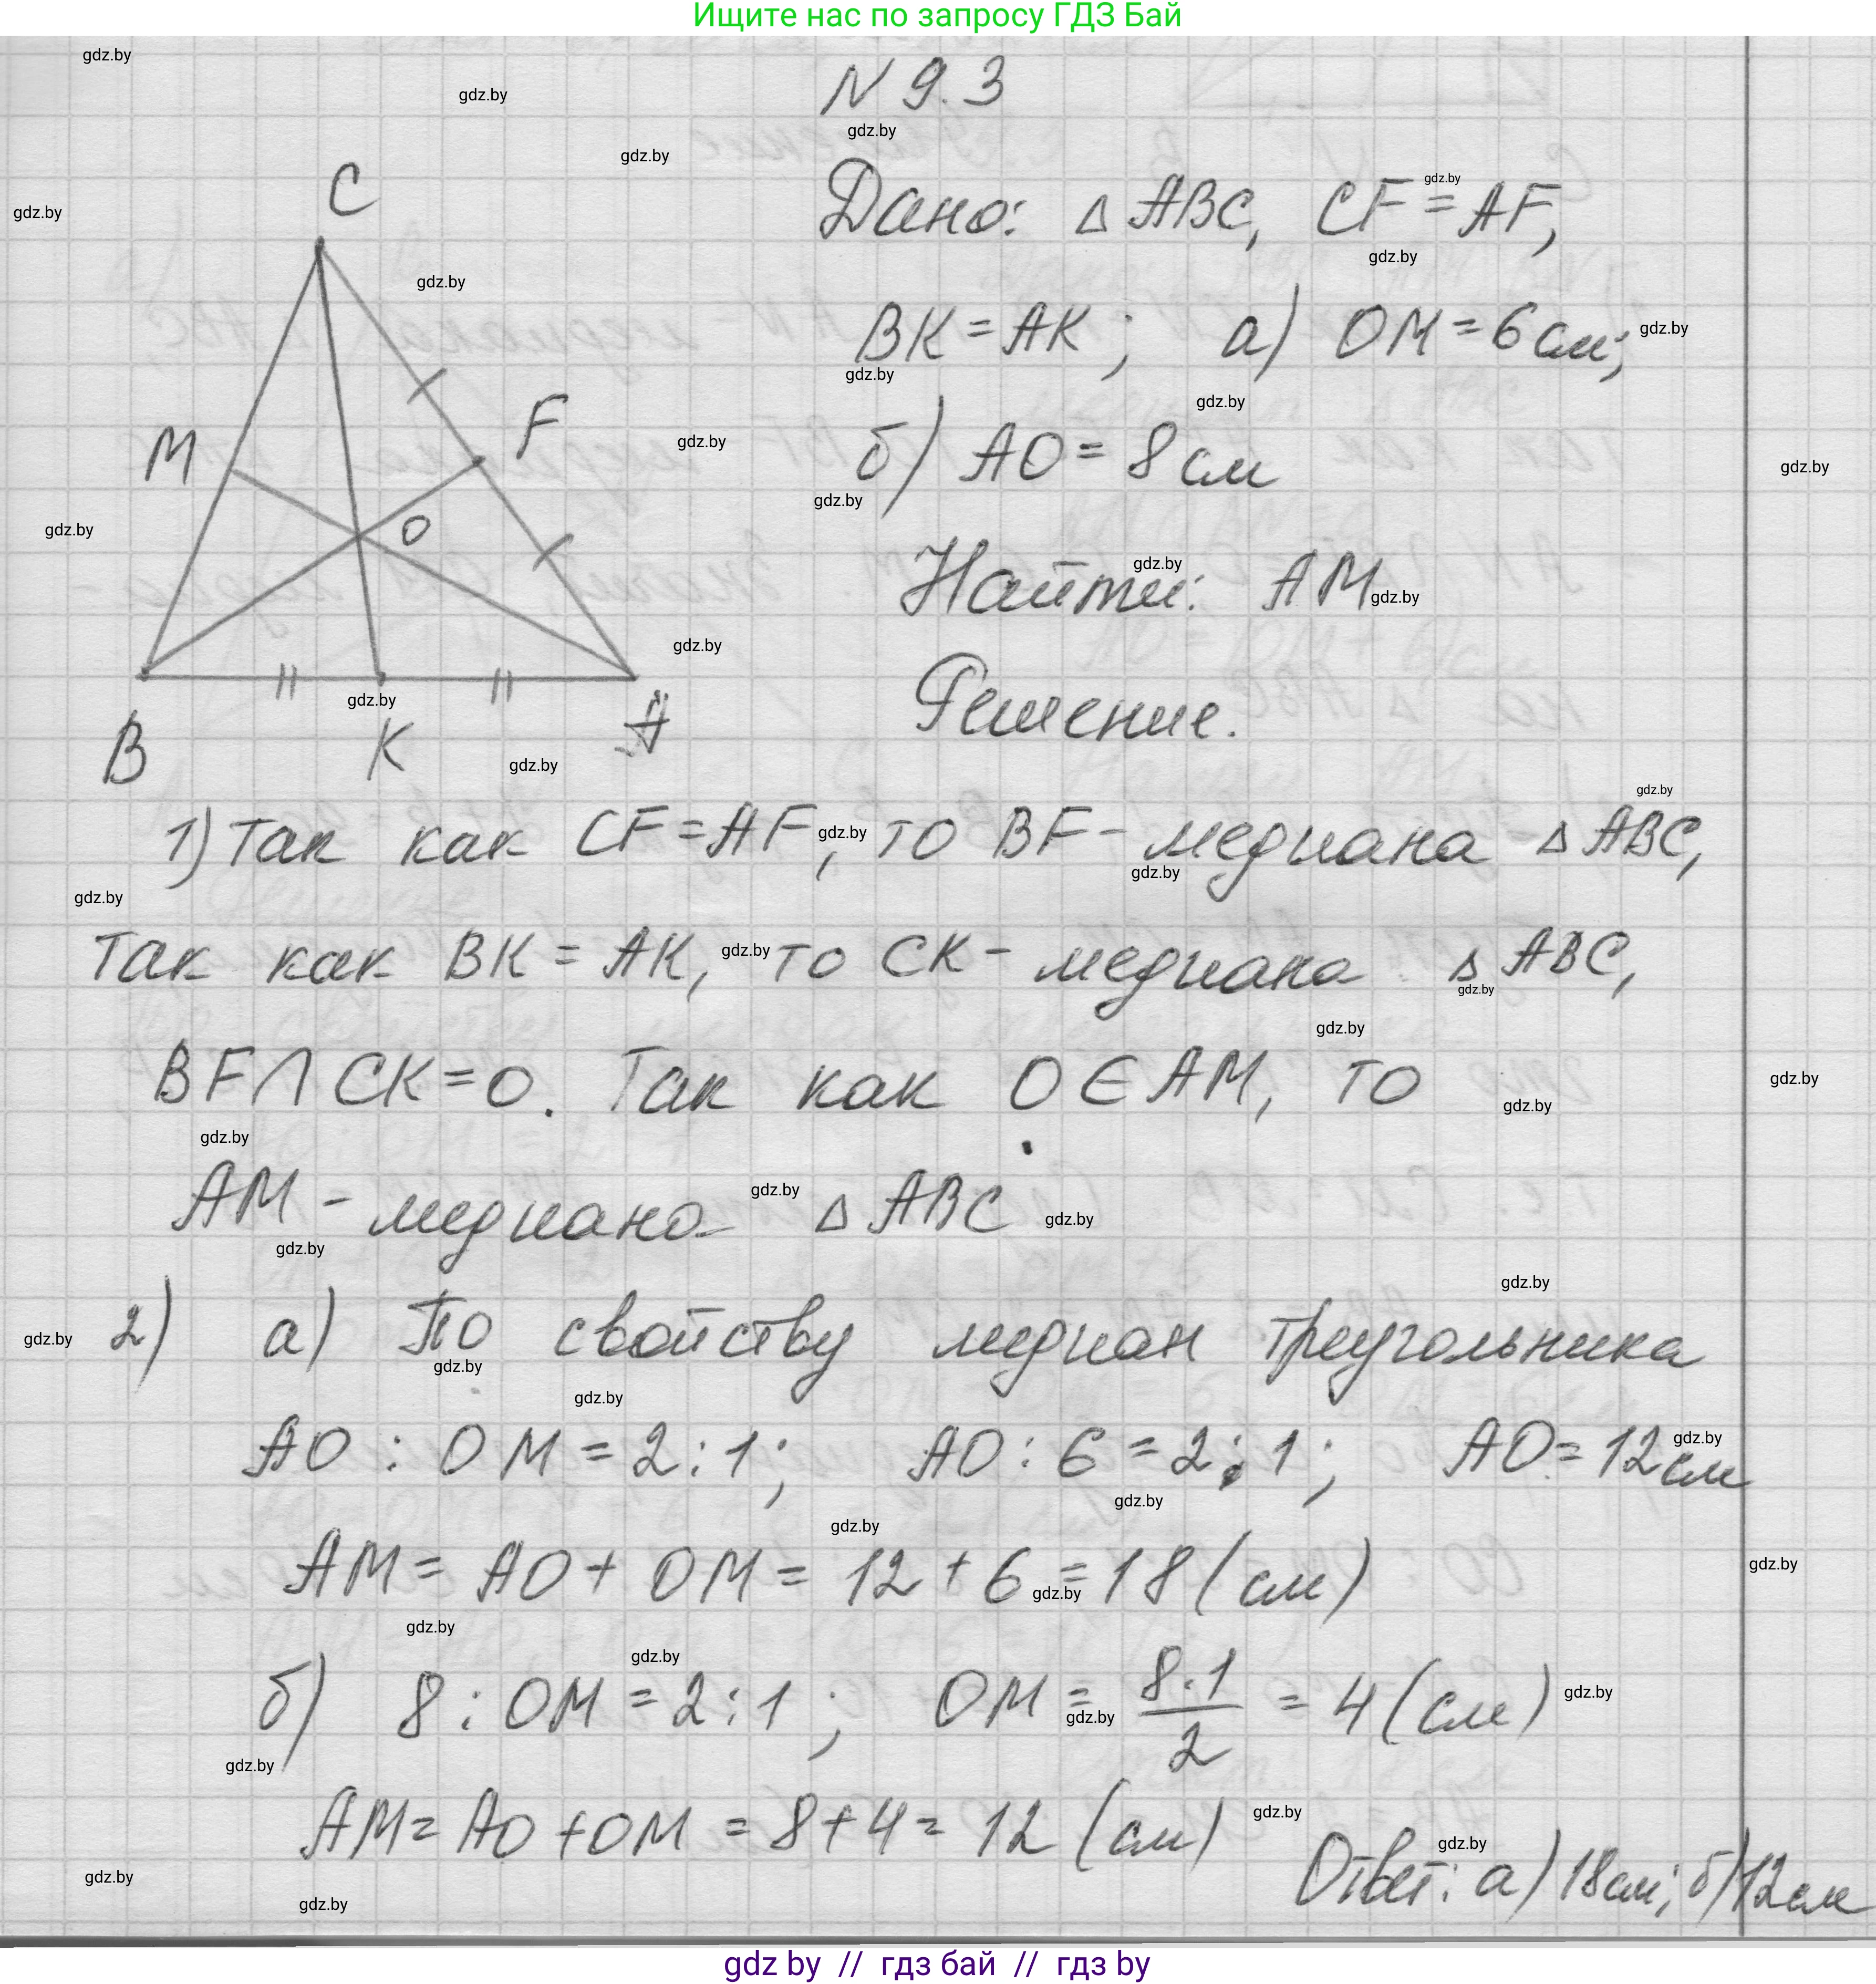 Ищите нас по запросу ГДЗ Бай
N 9.3
Дано: △ ABC, CF = AF,
BK = AK; а) OM = 6 см;
б) AO = 8 см
Найти: AM
Решение.
C
M
F
O
B
K
A
1) Так как CF = AF, то BF - медиана △ ABC,
так как BK = AK, то CK - медиана △ ABC,
BF ∩ CK = O. Так как O ∈ AM, то
AM - медиана △ ABC
2) а) По свойству медиан треугольника
AO : OM = 2 : 1; AO : 6 = 2 : 1; AO = 12 см
AM = AO + OM = 12 + 6 = 18 (см)
б) 8 : OM = 2 : 1; OM = 8·1/2 = 4 (см)
AM = AO + OM = 8 + 4 = 12 (см)
Ответ: а) 18 см; б) 12 см
gdz by // гдз бай // гдз by